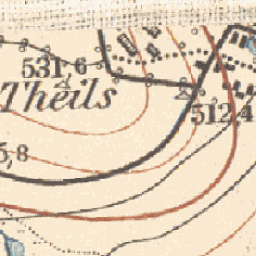 531,6
Theils
512,4
5,8